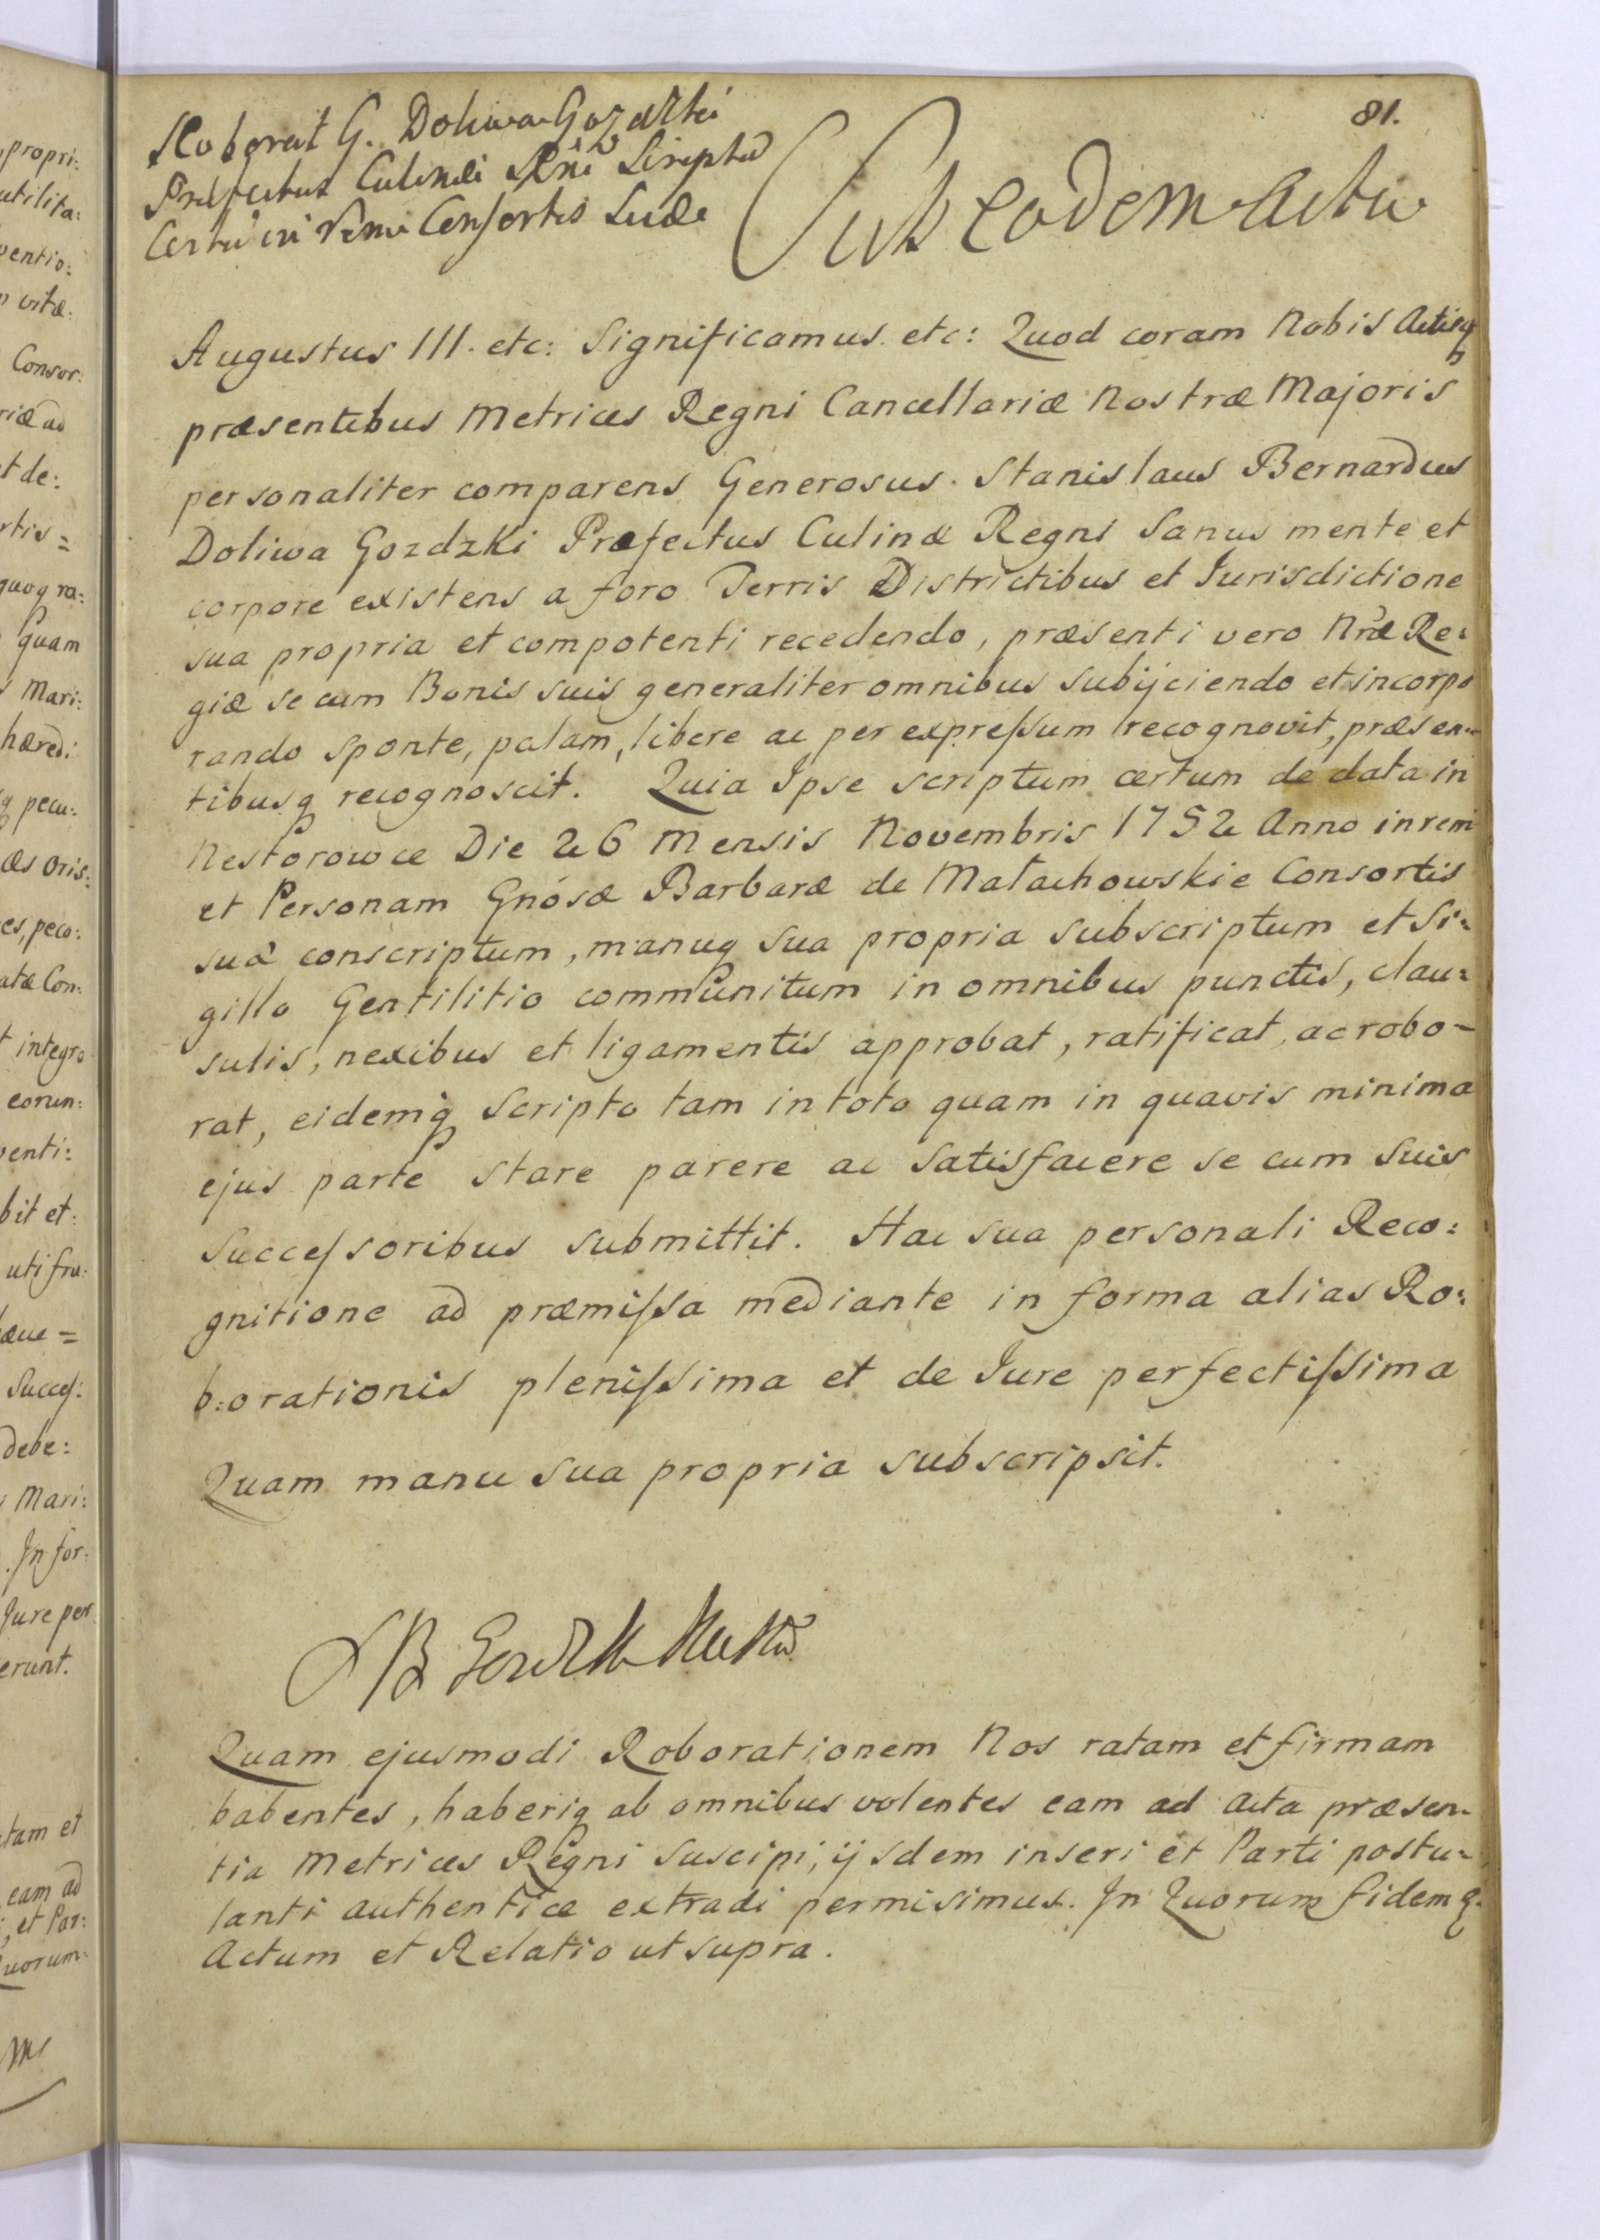 81.
Roborat G. Doliwa Gozdzki
Præfectus Culinæi Rñi Scriptũ
Certũ in rem Consortis Suæ
Sub eodem Actu
Augustus III. etc: Significamus. etc: Quod coram Nobis Actisq
præsentibus Metrices Regni Cancellariæ Nostræ Majoris
personaliter comparens Generosus. Stanislaus Bernardus
Doliwa Gozdzki Præfectus Culinæ Regni Sanus mente et
corpore existens a foro Terris Districtibus et Jurisdictione
sua propria et compotenti recedendo, præsenti vero Nræ Re:
giæ se cum Bonis suis generaliter omnibus subijciendo et incorpo
rando sponte, palam, libere ac per expressum recognovit, præsen=
tibusq recognoscit. Quia Ipse scriptum certum de data in
Nestorowce Die 26 Mensis Novembris 1752 Anno in rem
et Personam Gnosæ Barbaræ de Małachowskie Consortis
suæ conscriptum, manuq sua propria subscriptum et Si:
gillo Gentilitio communitum in omnibus punctis, clau:
sulis, nexibus et ligamentis approbat, ratificat, ac robo-
rat, eidemq Scripto tam in toto quam in quavis minima
ejus parte stare parere ac Satisfacere se cum suis
Successoribus submittit. Hac sua personali Reco:
gnitione ad præmissa mediante in forma alias Ro:
b:orationis plenissima et de Jure perfectissima
Quam manu sua propria subscripsit.
Quam ejusmodi Roborationem Nos ratam et firmam
habentes, haberiq ab omnibus volentes eam ad Acta præsen-
tia Metrices Regni suscipi, ijsdem inseri et Parti postu-
lanti authentice extradi permisimus. In Quorum fidem q.
Actum et Relatio ut supra.